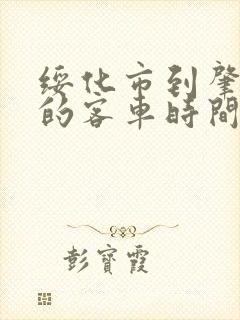 绥化市到肇
的客车時間
彭寶霞